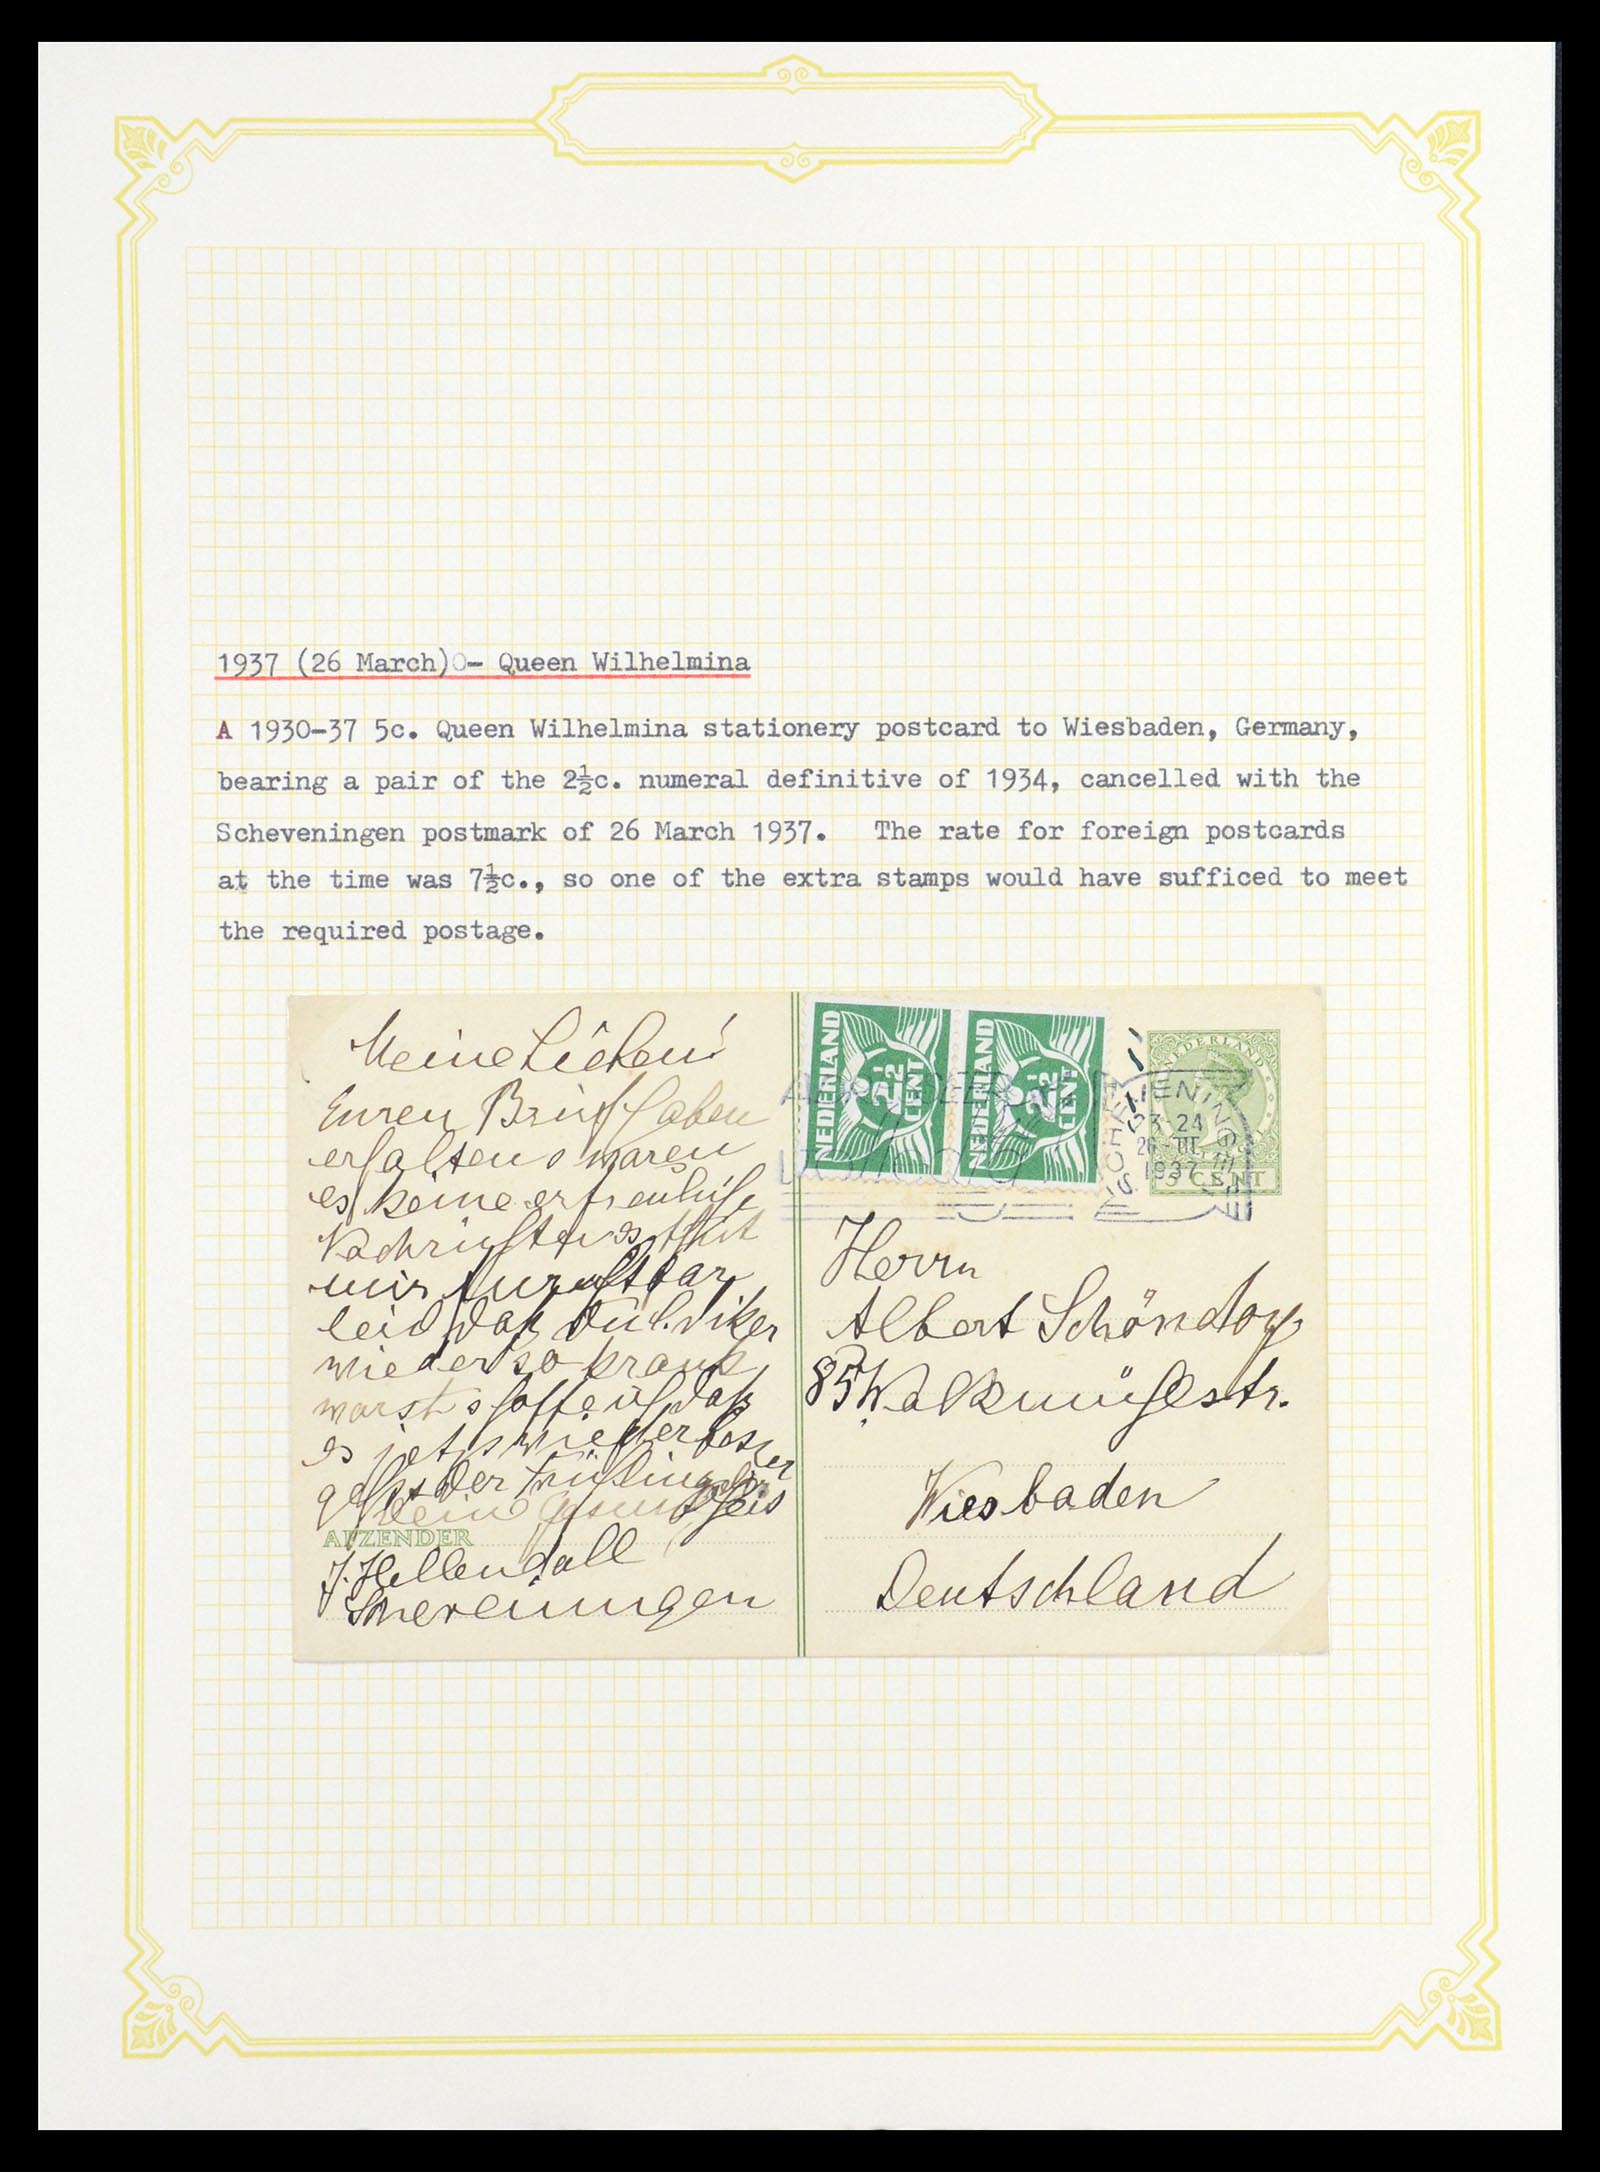 1937 (26 March) - Queen Wilhelmina
A 1930-37 5c. Queen Wilhelmina stationery postcard to Wiesbaden, Germany,
bearing a pair of the 2½c. numeral definitive of 1934, cancelled with the
Scheveningen postmark of 26 March 1937. The rate for foreign postcards
at the time was 7½c., so one of the extra stamps would have sufficed to meet
the required postage.
Meine Lieben!
Euren Brief haben
erhalten waren
es keine erfreuliche
Nachrichten es thut
mir furchtbar
leid daß Du l.
wieder so krank
warst hoffe ich daß
es jetzt wieder besser
geht der Frühling
AFZENDER
J. Hellendall
Scheveningen
NEDERLAND
2½ CENT
NEDERLAND
2½ CENT
NEDERLAND
5 CENT
SCHEVENINGEN
23-24
26 III
1937
Herrn
Albert Schöndorf
85 Walkmühlestr.
Wiesbaden
Deutschland